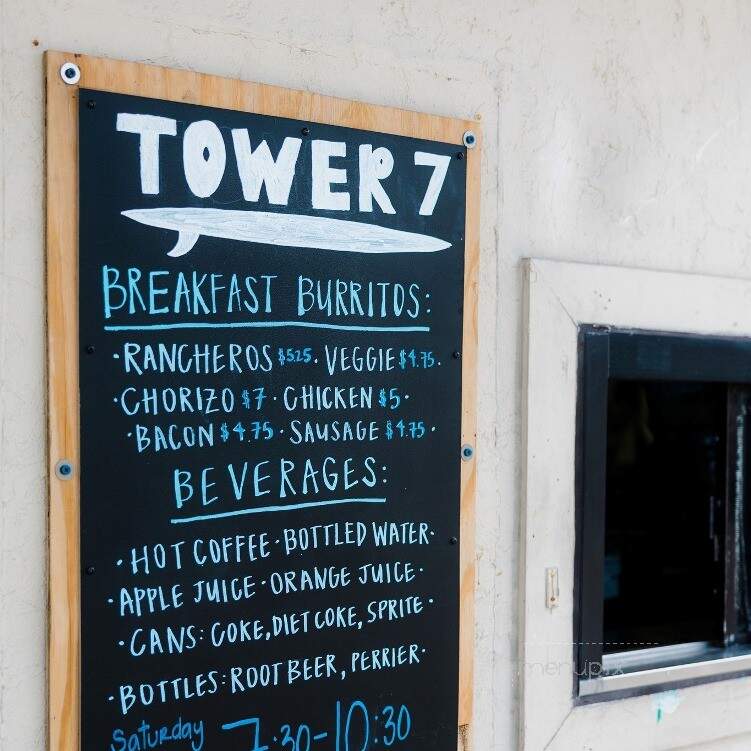 TOWER 7
BREAKFAST BURRITOS:
·RANCHEROS $5.25· VEGGIE $4.75·
·CHORIZO $7 · CHICKEN $5·
·BACON $4.75 · SAUSAGE $4.75·
BEVERAGES:
·HOT COFFEE·BOTTLED WATER·
·APPLE JUICE·ORANGE JUICE·
·CANS: COKE, DIET COKE, SPRITE·
·BOTTLES: ROOT BEER, PERRIER·
Saturday 7:30-10:30
menupix